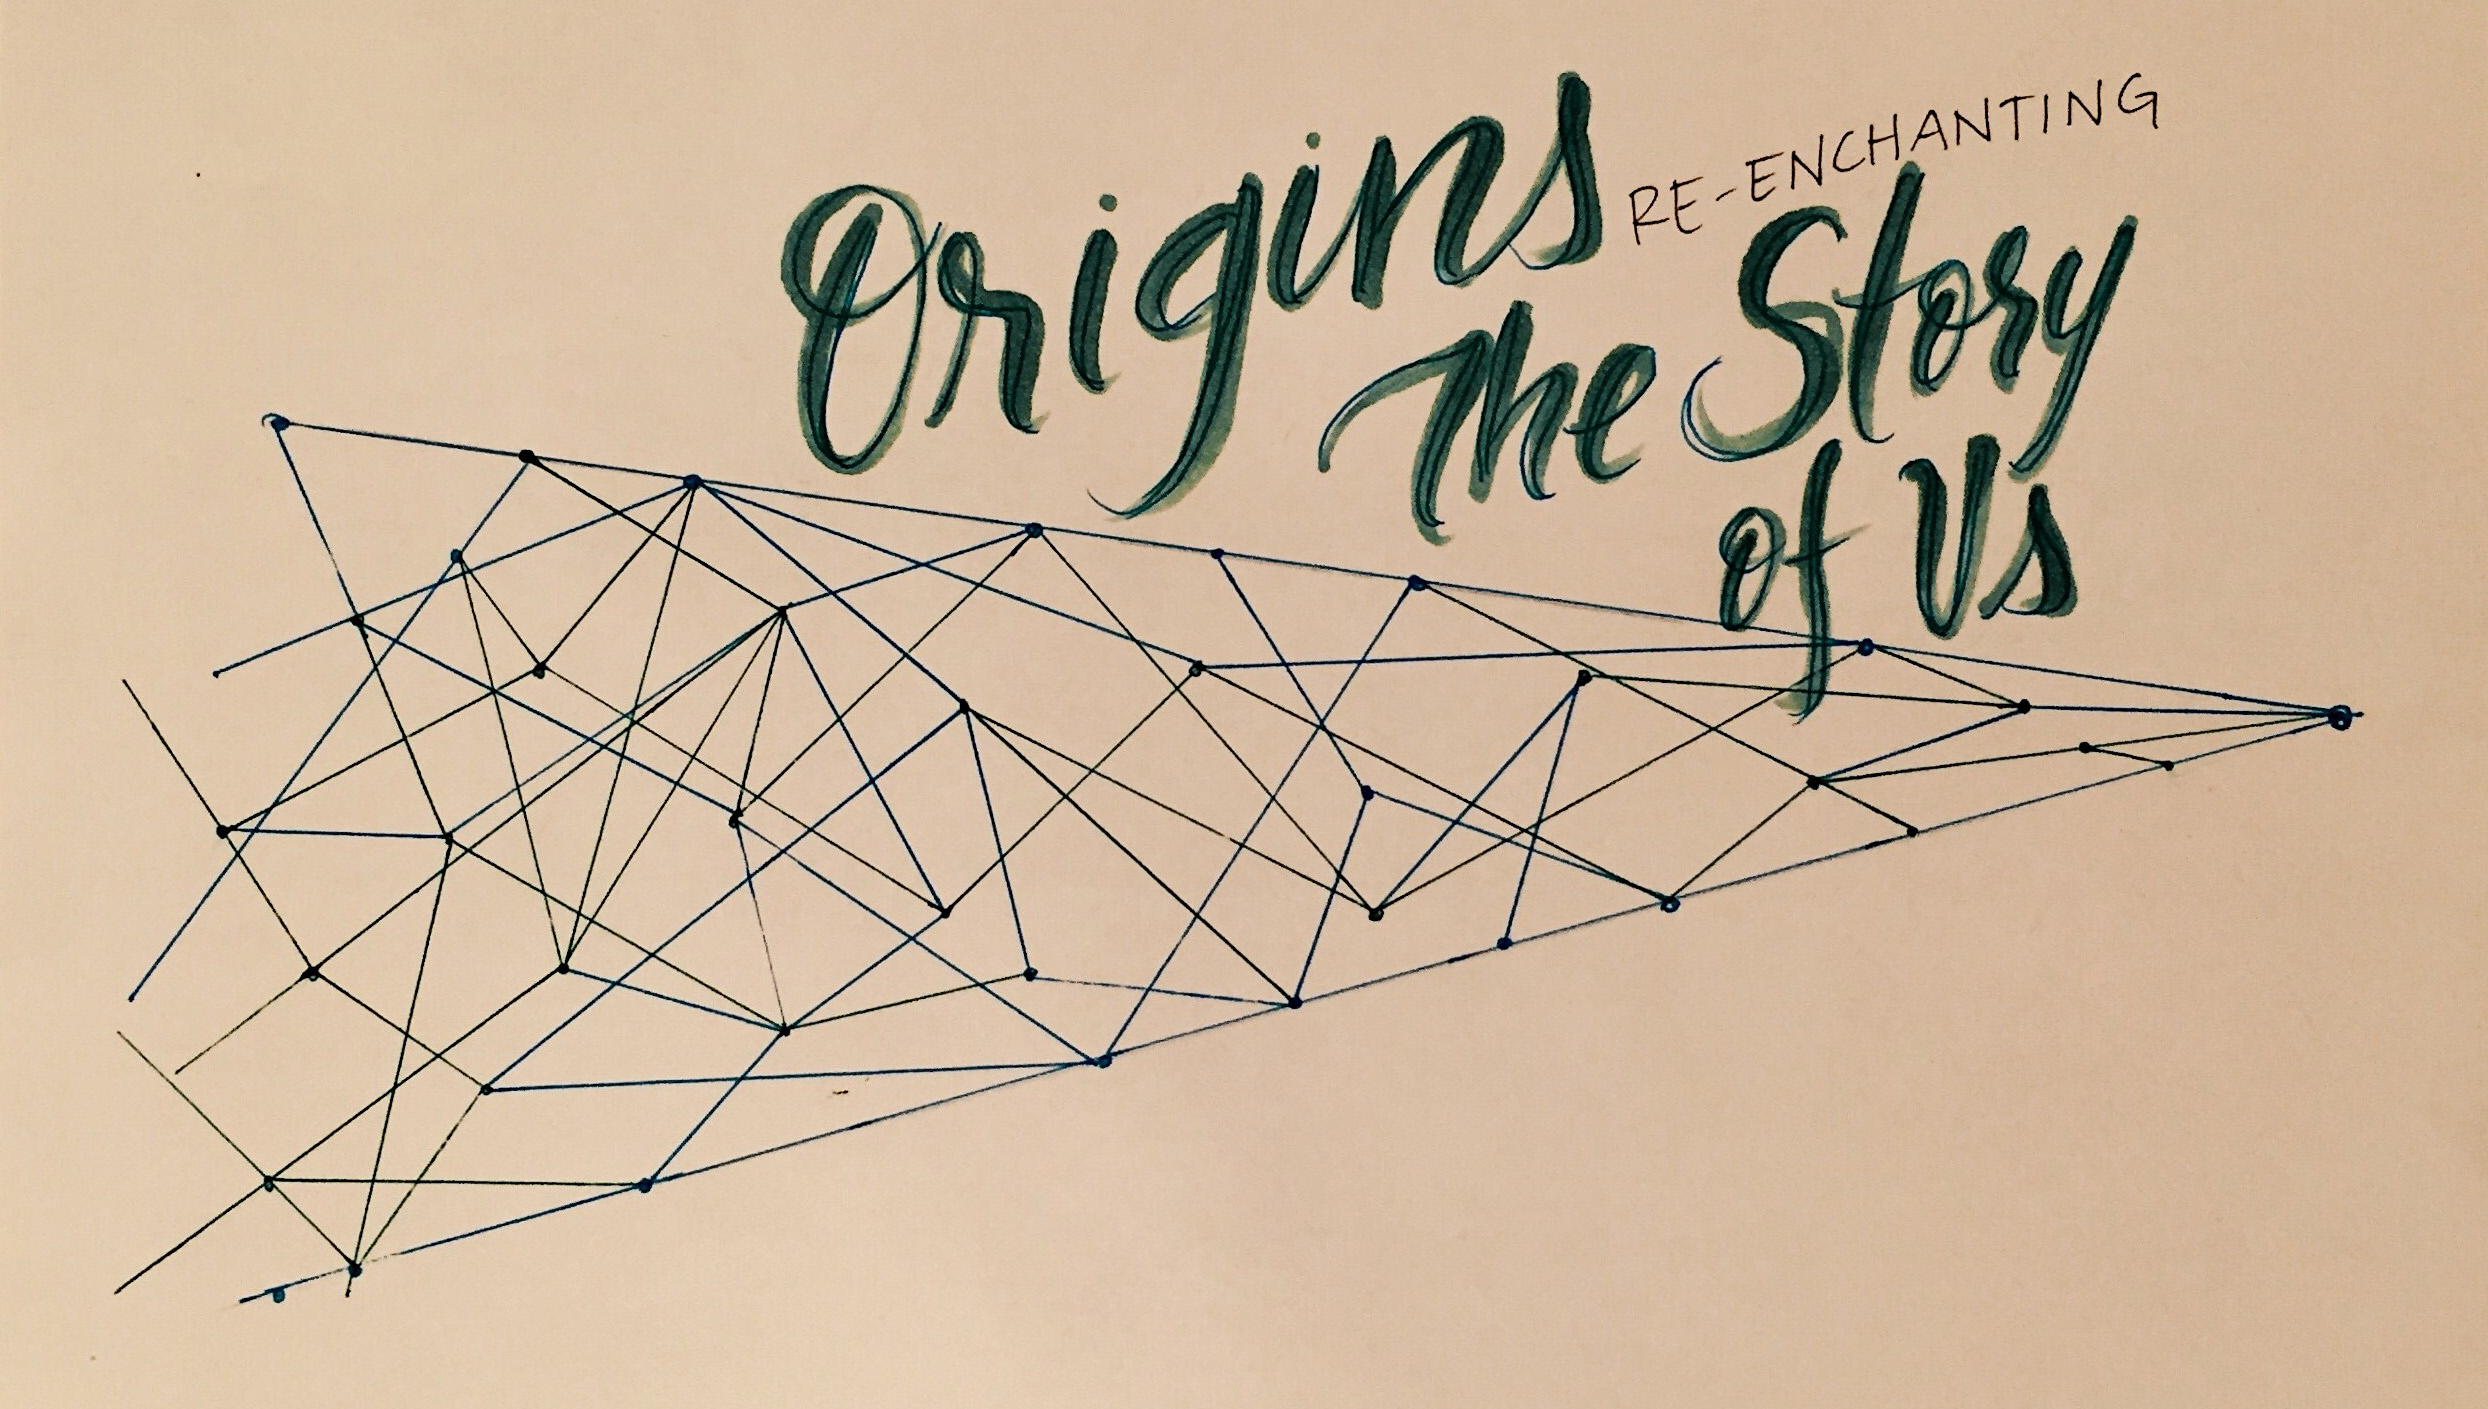 Origins
RE-ENCHANTING
The Story
of Us